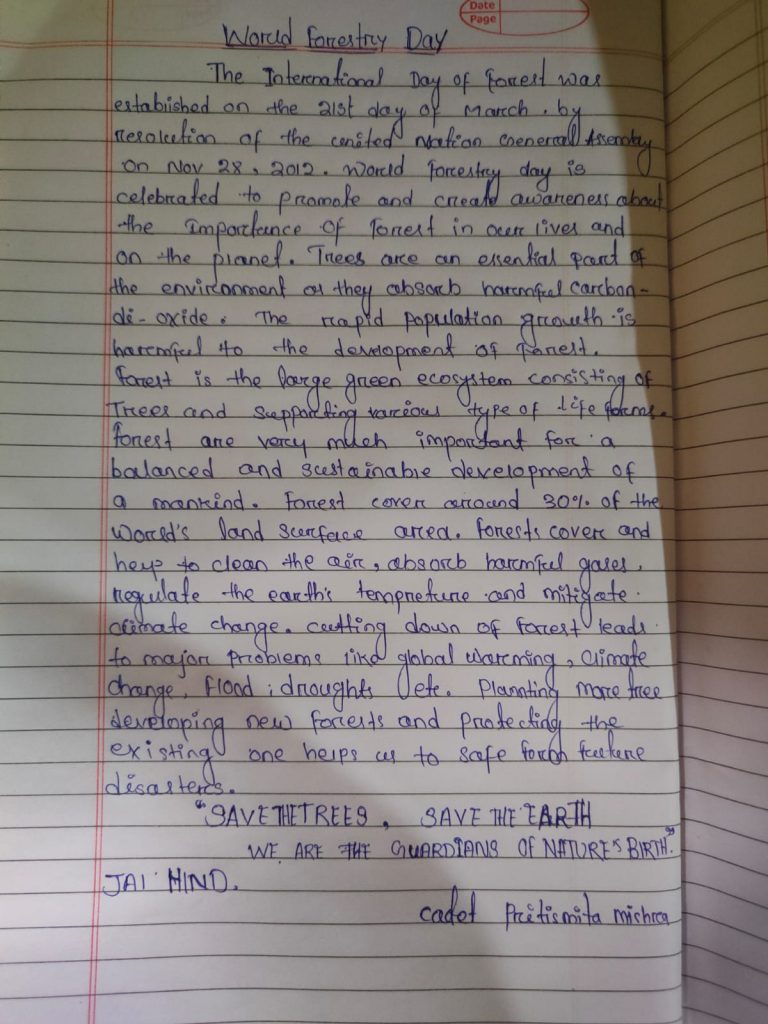 Date
Page
World Forrestry Day
The International Day of forrest was
established on the 21st day of March. by
resolution of the united Nation General Assembly
on Nov 28, 2012. World forrestry day is
celebrated to promote and create awareness about
the importance of forrest in our lives and
on the planet. Trees are an essential part of
the environment as they absorb harmful carbon-
di-oxide. The rapid population growth is
harmful to the development of forest.
forest is the large green ecosystem consisting of
Trees and supporting various type of life forms.
forest are very much important for a
balanced and sustainable development of
a mankind. forest cover arround 30% of the
World's land surface area. forests cover and
help to clean the air, absorb harmful gases,
regulate the earth's tempreture and mitigate
climate change. cutting down of forest leads
to major problems like global warming, climate
change, flood, droughts etc. Plannting more tree
developing new forests and protecting the
existing one helps us to safe from future
disasters.
"SAVE THE TREES, SAVE THE EARTH
WE ARE THE GUARDIANS OF NATURE'S BIRTH."
JAI HIND.
cadet Pritismita mishra